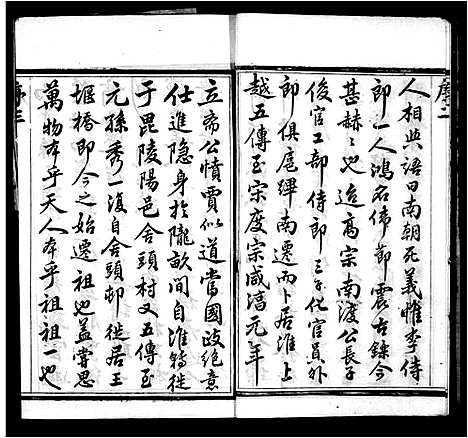 序二
人相与語曰南朝死義惟李侍
郎一人鴻名偉節震古鑠今
甚赫赫也迨高宗南渡公長子
俊官工部侍郎三子化官員外
郎俱扈蹕南遷而卜居淮上
越五傳至宋度宗咸淳元年
立齋公憤賈似道當國政絶意
仕進隐身於隴畝間自淮韩徙
于毘陵陽邑舍頭村又五傳至
元孫秀一复自舍頭邨徙居王
堰橋即今之始遷祖也蓋嘗思
萬物本乎天人本乎祖祖一也
序三